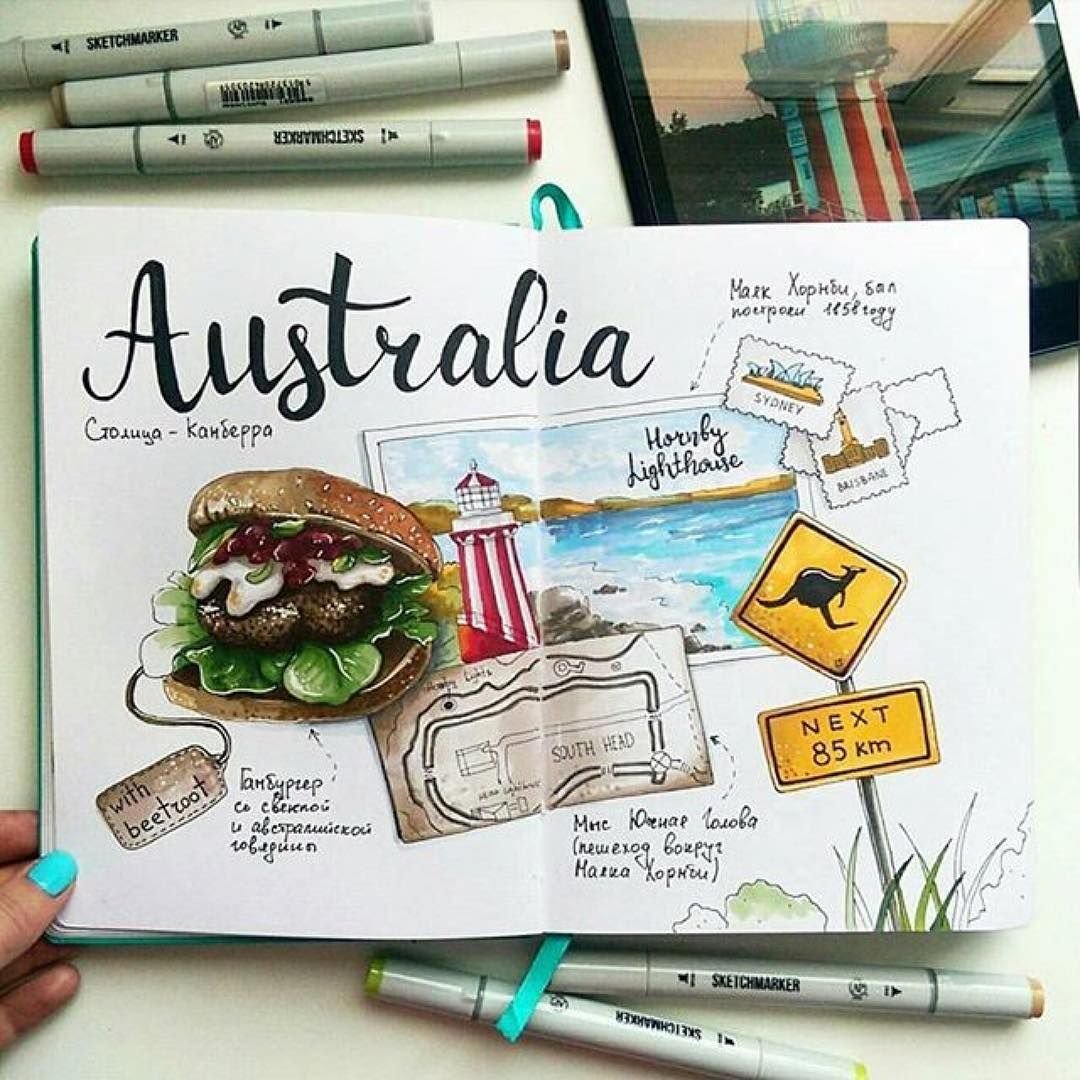 SKETCHMARKER
SKETCHMARKER
Australia
Столица - Канберра
Маяк Хорнби, был
построен 1858 году
SYDNEY
BRISBANE
Hornby
Lighthouse
NEXT
85 km
Hornby Lights
SOUTH HEAD
with
beetroot
Гамбургер
со свеклой
и австралийской
говядины
Мыс Южная Голова
(пешеход вокруг
Маяка Хорнби)
SKETCHMARKER
SKETCHMARKER